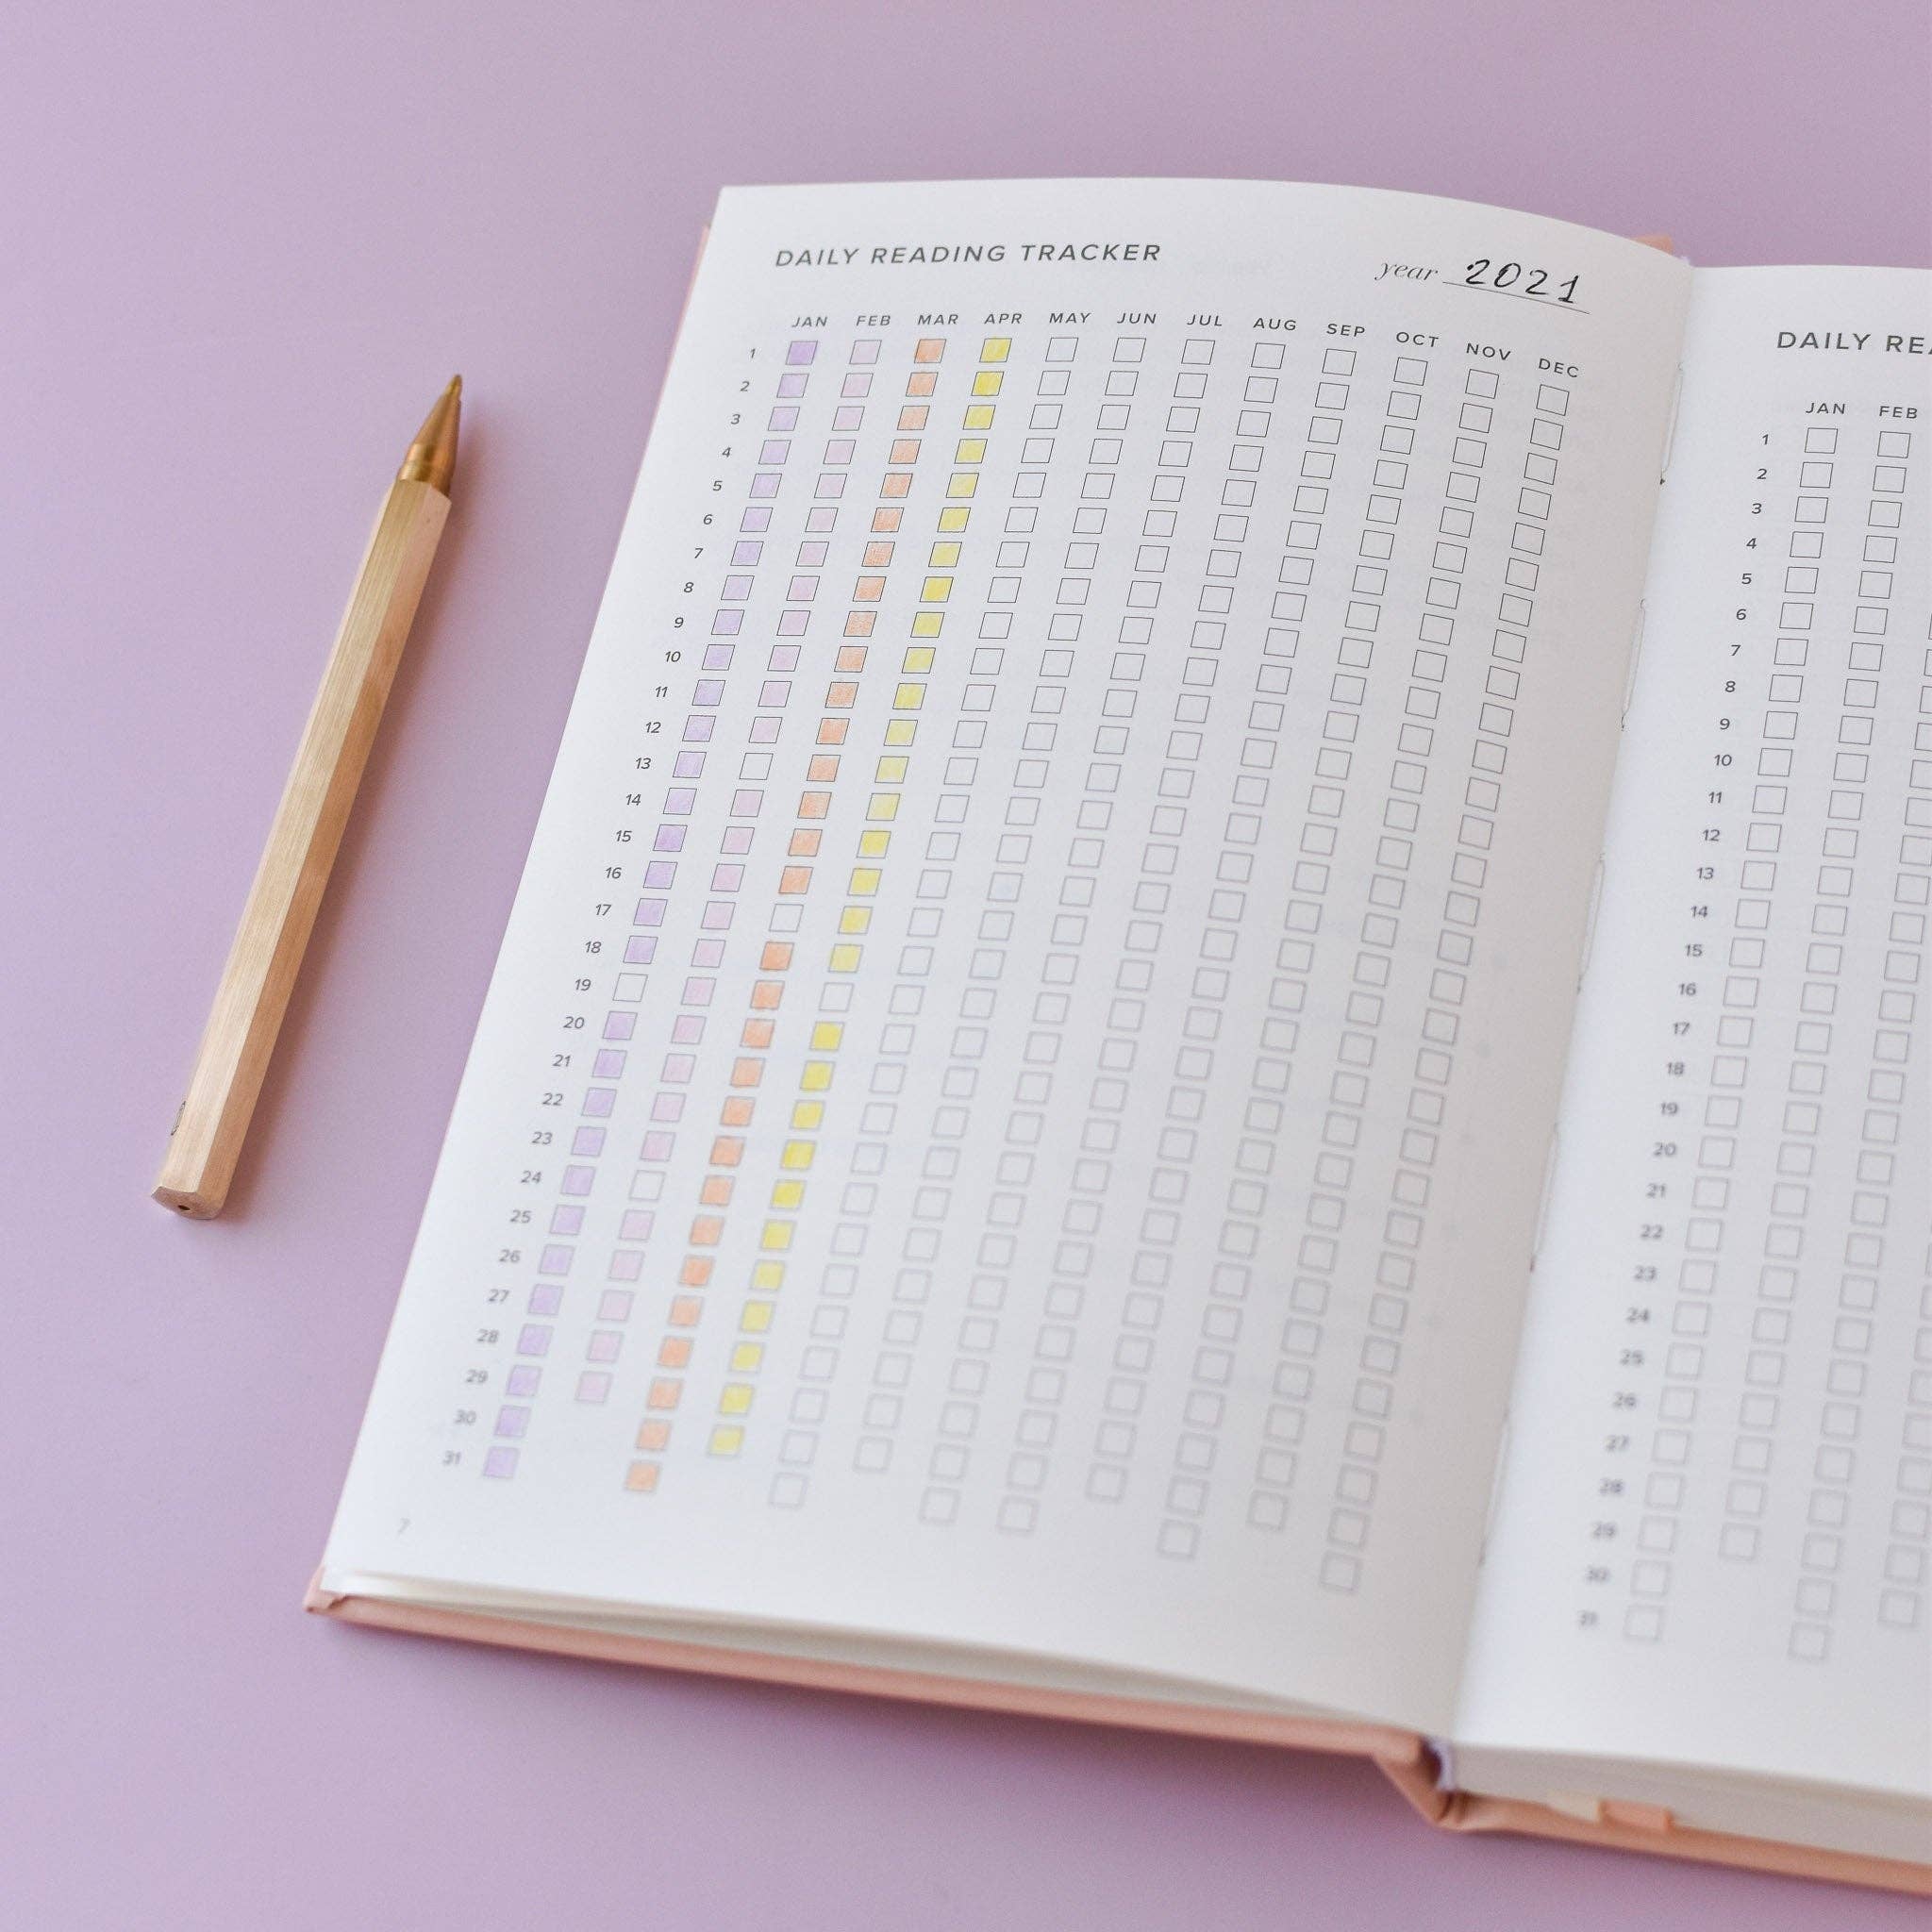 DAILY READING TRACKER
year 2021
JAN FEB MAR APR MAY JUN JUL AUG SEP OCT NOV DEC
1
2
3
4
5
6
7
8
9
10
11
12
13
14
15
16
17
18
19
20
21
22
23
24
25
26
27
28
29
30
31
7
DAILY REA
JAN FEB
1
2
3
4
5
6
7
8
9
10
11
12
13
14
15
16
17
18
19
20
21
22
23
24
25
26
27
28
29
30
31